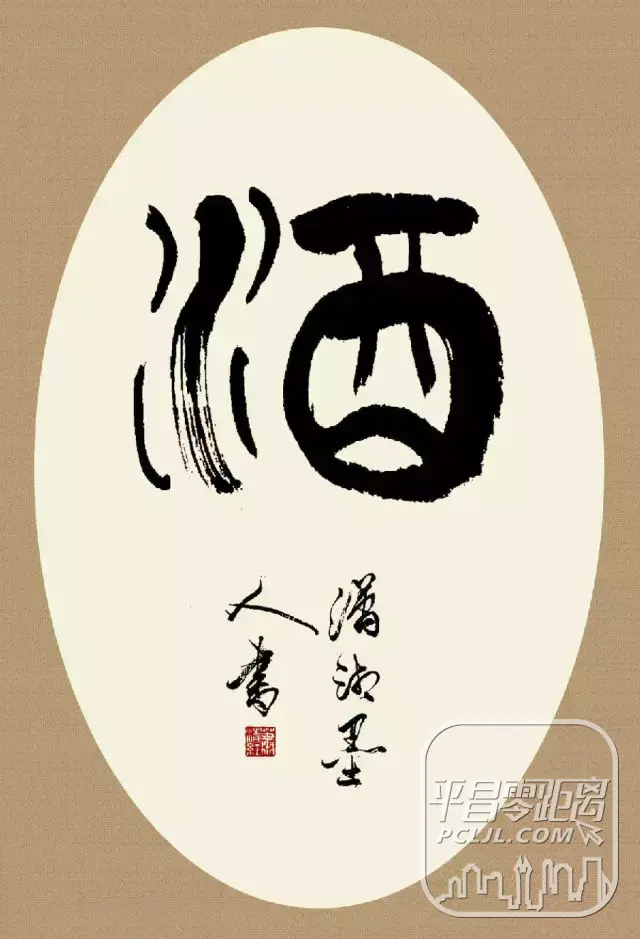 酒
潇湘墨
人书
平昌零距离
PCLJL.COM